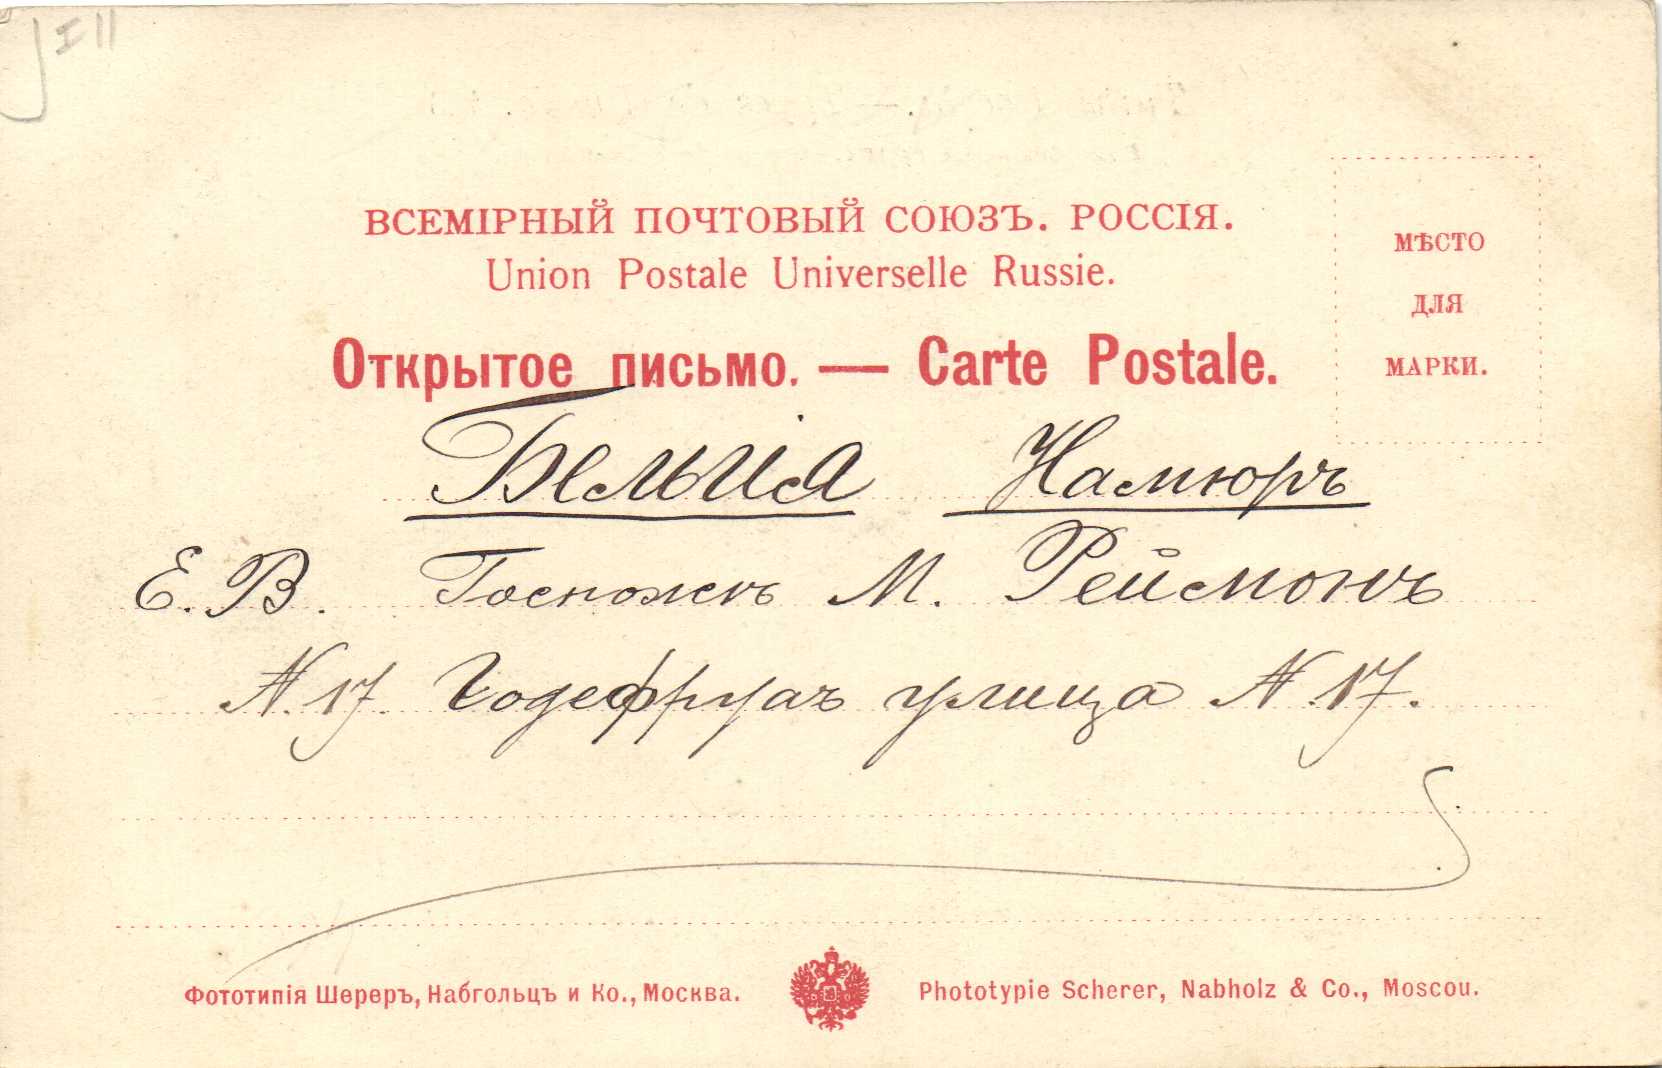 ВСЕМІРНЫЙ ПОЧТОВЫЙ СОЮЗЪ. РОССІЯ.
Union Postale Universelle Russie.
МѢСТО
ДЛЯ
МАРКИ.
Открытое письмо. — Carte Postale.
Бельгія Намюръ
Е. В. Госпожѣ М. Реймонъ
N. 17. Годефруаъ улица N. 17.
Фототипія Шереръ, Набгольцъ и Ко., Москва.
Phototypie Scherer, Nabholz & Co., Moscou.